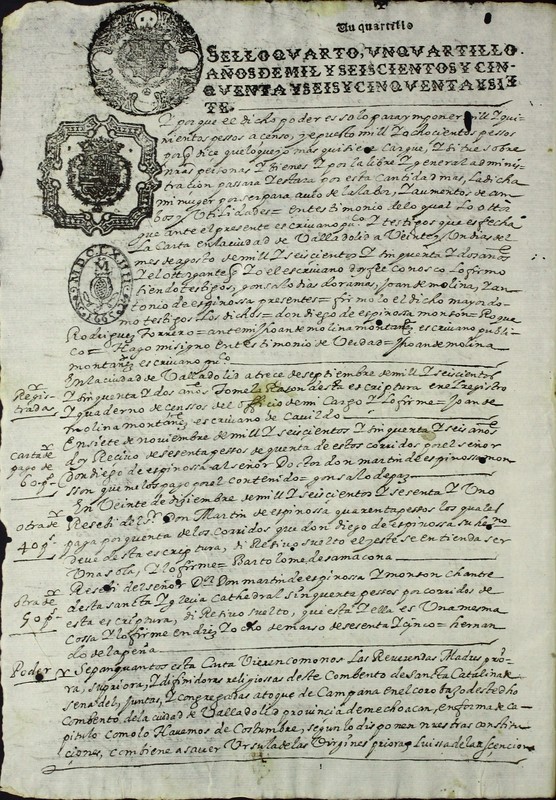 Un quartillo
SELLO QVARTO, VN QVARTILLO.
AÑOS DE MIL Y SEISCIENTOS Y CIN-
QVENTA Y SEIS Y CINQVENTA Y SIE
TE.
Y porque el dicho poder es solo para ymponer mill y qui-
nientos pesos a censo, y e puesto mill y ochocientos pesos
dice que luego y mas quisiere cargue, y situe sobre
mis personas y bienes y por la libre y general adminis-
tracion passara y estara por esta cantidad mas, la dicha
mi muger por ser para auio de la labor, y aumentos de am-
bos, y Utilidades = en testimonio de lo qual lo otor-
gue ante el presente escriuano puco y testigos que es fecha
La Carta en la ciudad de Valladolid a Veinte y Un dias del
mes de agosto de mill y seiscientos y sinquenta y dos años
y el otorgante Yo el escriuano doy fee conosco lo firmo
siendo testigos, gonsalo dias de ramas, Joan de molina, y an-
tonio de espinossa presentes = firmolo el dicho mayordo-
mo testigos Los dichos = don diego de espinossa monson = Roque
Rodrigues Forrero = ante mi Joan de molina montañez escriuano publi-
co = Hago mi signo en testimonio de Verdad = Joan de molina
montañez escriuano puco
En la ciudad de Valladolid a trece de septiembre de mill y seiscientos
Regis- y sinquenta y dos años Tome la Rason desta escriptura en el registro
trada y quaderno de censsos del officio de mi Cargo y lo firme = Joan de
molina montañez escriuano de Cavildo
carta de En siete de noviembre de mill y seiscientos y sinquenta y seis años
pago de Reciuo de sesenta pessos de quenta de estos corridos por el señor
60 ps Don diego de espinossa al señor Doctor don martin de espinossa mon
sson que me los pago por el contenido = gonsalo de paz
En Veinte de disiembre de mill y seiscientos y sesenta y Uno
otra de Resebi del Sr Don Martin de espinossa quarenta pessos los quales
40 ps paga por quenta de los corridos que don diego de espinossa su hermano
deve desta escriptura, di Resiuo suelto el y este se entienda ser
Una sola, y lo firme = Bartolome de samacona
Resebi del señor Dr. Don martin de espinossa y monson chantre
otra de desta sancta yglecia Cathedral sinquenta pessos por corridos de
50 ps esta escriptura, di Resiuo suelto, que este y ella es Una mesma
Cossa y lo firme en dies y ocho de marso de sesenta y cinco = hernan-
do de la peña
Poder Sepan quantos esta Carta Vieren como nos Las Reverendas Madres prio-
ra, supriora, y difinidoras religiosas deste Combento de Santa Catalina de
sena del, Juntas, y Congregadas a toque de Campana en el coro bajo deste dicho
Combento de la ciudad de Valladolid provincia de mechoacan, en forma de ca-
pitulo como lo Havemos de Costumbre, segun lo disponen nuestras constitu-
ciones, combiene a saver Ursula de las Virgines priora = Luissa de la asencion